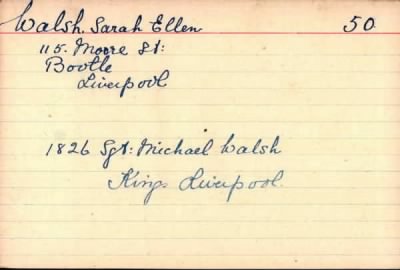 Walsh. Sarah Ellen 50
115. Moore St:
Bootle
Liverpool
1826 Sgt: Michael Walsh
Kings Liverpool.